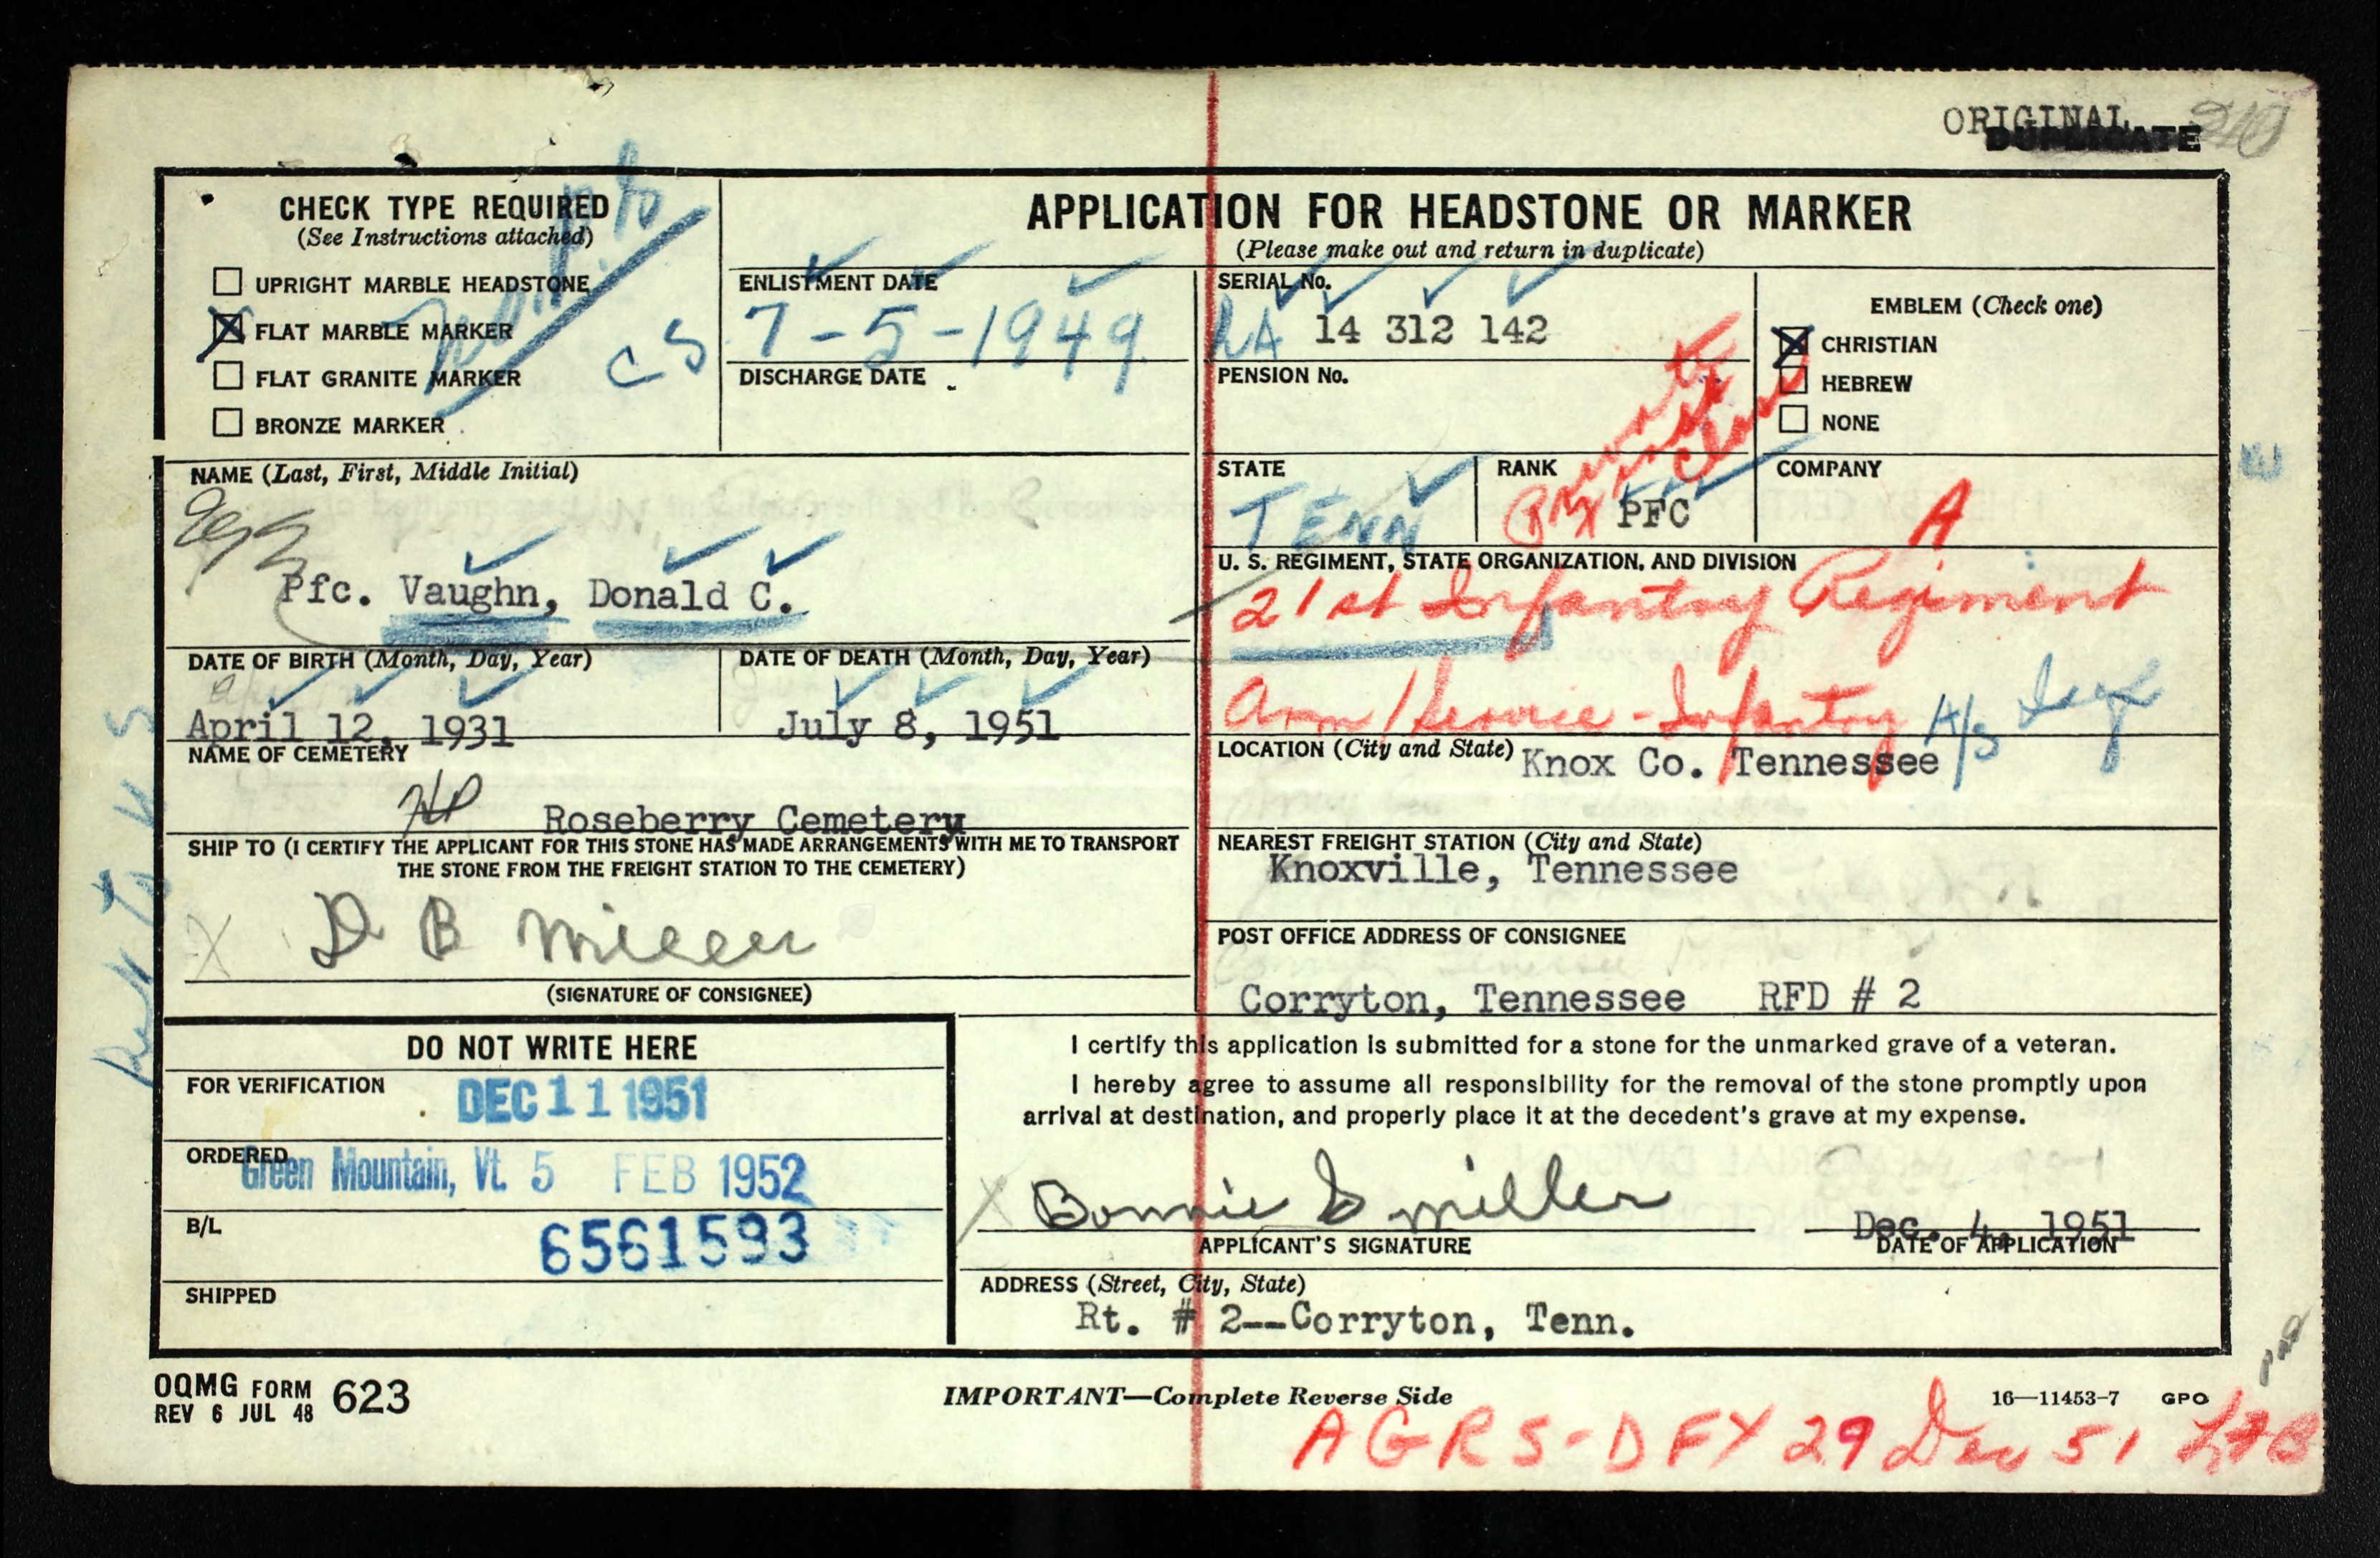 ORIGINAL
DUPLICATE
CHECK TYPE REQUIRED
(See Instructions attached)
UPRIGHT MARBLE HEADSTONE
FLAT MARBLE MARKER
FLAT GRANITE MARKER
BRONZE MARKER
CS
APPLICATION FOR HEADSTONE OR MARKER
(Please make out and return in duplicate)
ENLISTMENT DATE
7-5-1949
DISCHARGE DATE
SERIAL No.
RA 14 312 142
PENSION No.
EMBLEM (Check one)
CHRISTIAN
HEBREW
NONE
NAME (Last, First, Middle Initial)
Pfc. Vaughn, Donald C.
STATE
TENN
RANK
Private First Class
PFC
COMPANY
A
U. S. REGIMENT, STATE ORGANIZATION, AND DIVISION
21st Infantry Regiment
Arm/Service-Infantry A/S
DATE OF BIRTH (Month, Day, Year)
April 12, 1931
DATE OF DEATH (Month, Day, Year)
July 8, 1951
NAME OF CEMETERY
Roseberry Cemetery
LOCATION (City and State) Knox Co. Tennessee
SHIP TO (I CERTIFY THE APPLICANT FOR THIS STONE HAS MADE ARRANGEMENTS WITH ME TO TRANSPORT
THE STONE FROM THE FREIGHT STATION TO THE CEMETERY)
X D B Miller
(SIGNATURE OF CONSIGNEE)
NEAREST FREIGHT STATION (City and State)
Knoxville, Tennessee
POST OFFICE ADDRESS OF CONSIGNEE
Corryton, Tennessee RFD # 2
DO NOT WRITE HERE
FOR VERIFICATION
DEC 11 1951
ORDERED
Green Mountain, Vt. 5 FEB 1952
B/L
6561593
SHIPPED
I certify this application is submitted for a stone for the unmarked grave of a veteran.
I hereby agree to assume all responsibility for the removal of the stone promptly upon
arrival at destination, and properly place it at the decedent's grave at my expense.
X Bonnie G Miller
APPLICANT'S SIGNATURE
Dec. 4, 1951
DATE OF APPLICATION
ADDRESS (Street, City, State)
Rt. # 2--Corryton, Tenn.
OQMG FORM 623
REV 6 JUL 48
IMPORTANT—Complete Reverse Side
16—11453-7 GPO
AGRS-DFY 29 Dec 51